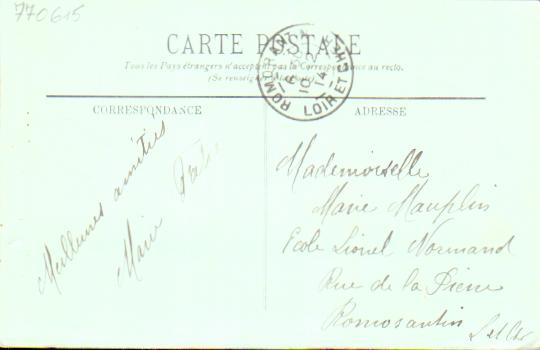 770615
CARTE POSTALE
Tous les Pays étrangers n'acceptent pas la Correspondance au recto.
(Se renseigner à la Poste)
ROMORANTIN
LOIR ET CHER
CORRESPONDANCE
ADRESSE
Meilleures amitiés
Marie
Mademoiselle
Marie Mauplin
Ecole Lionel Normand
Rue de la Pierre
Romorantin
L et Cher